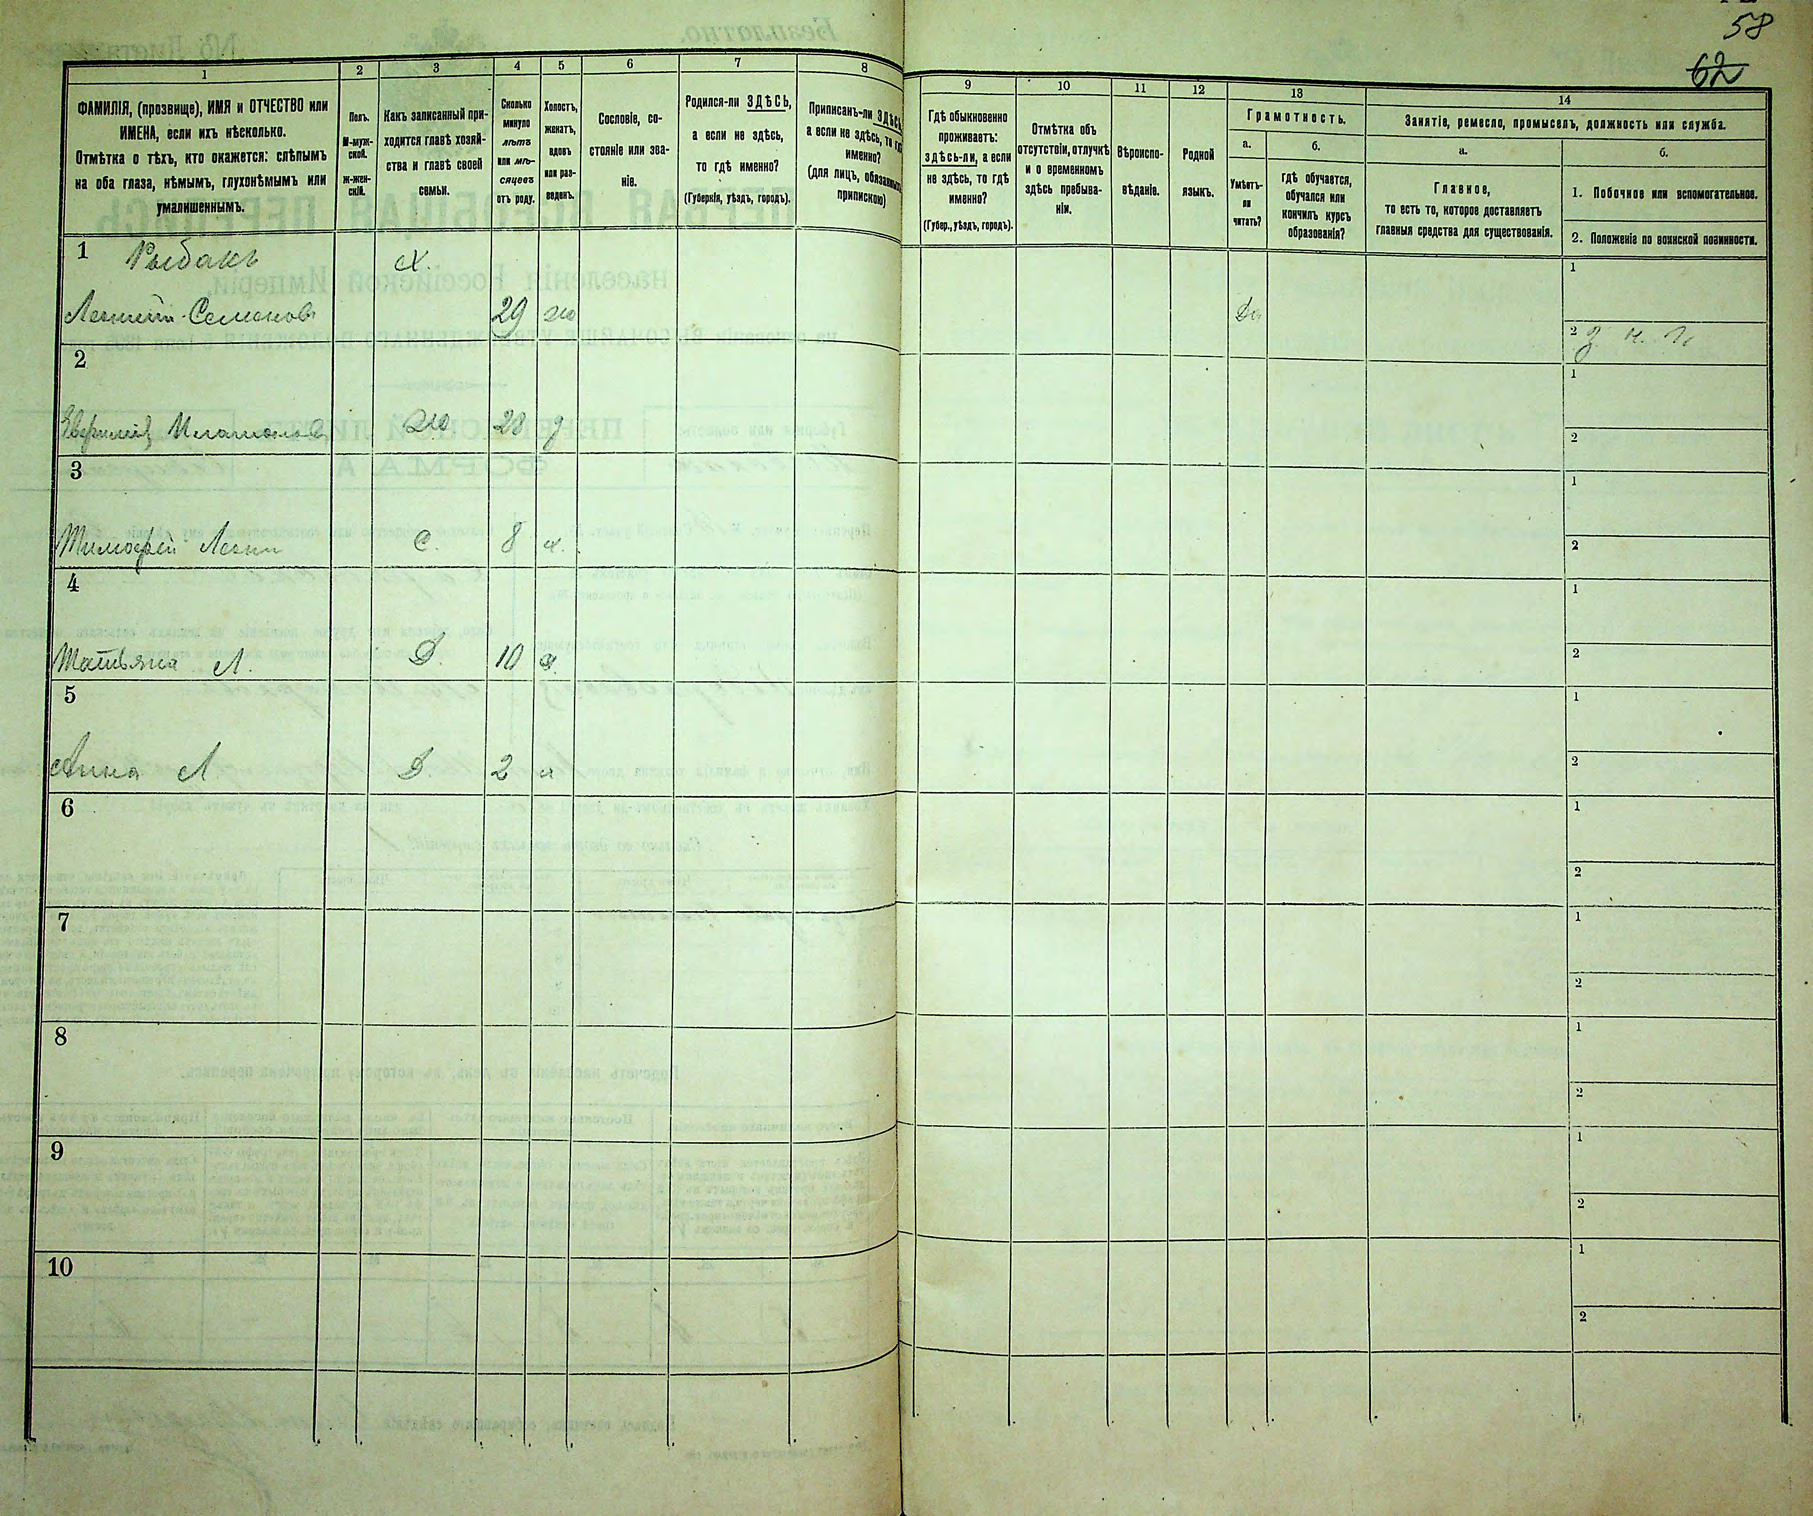 58
62
1
2
3
4
5
6
7
8
ФАМИЛІЯ, (прозвище), ИМЯ и ОТЧЕСТВО или
ИМЕНА, если ихъ нѣсколько.
Отмѣтка о тѣхъ, кто окажется: слѣпымъ
на оба глаза, нѣмымъ, глухонѣмымъ или
умалишеннымъ.
Полъ.
М-муж-
ской.
Ж-жен-
скій.
Какъ записанный при-
ходится главѣ хозяй-
ства и главѣ своей
семьи.
Сколько
минуло
лѣтъ
или мѣ-
сяцевъ
отъ роду.
Холостъ,
женатъ,
вдовъ
или раз-
веденъ.
Сословіе, со-
стояніе или зва-
ніе.
Родился-ли ЗДѢСЬ,
а если не здѣсь,
то гдѣ именно?
(Губернія, уѣздъ, городъ).
Приписанъ-ли ЗДѢСЬ,
а если не здѣсь, то гдѣ
именно?
(для лицъ, обязанныхъ
припискою)
9
10
11
12
13
14
Гдѣ обыкновенно
проживаетъ:
здѣсь-ли, а если
не здѣсь, то гдѣ
именно?
(Губер., уѣздъ, городъ).
Отмѣтка объ
отсутствіи, отлучкѣ
и о временномъ
здѣсь пребыва-
ніи.
Вѣроиспо-
вѣданіе.
Родной
языкъ.
Грамотность.
а.
Умѣетъ-
ли
читать?
б.
гдѣ обучается,
обучался или
кончилъ курсъ
образованія?
Занятіе, ремесло, промыселъ, должность или служба.
а.
Главное,
то есть то, которое доставляетъ
главныя средства для существованія.
б.
1. Побочное или вспомогательное.
2. Положеніе по воинской повинности.
1 Рыбакъ х.
Семенов 29 ж Да
1
2
2
28 д
1
2
3
Тимофей С. 8 х.
1
2
4
Татьяна Л. Д. 10
1
2
5
Анна Л Д. 2
1
2
6
1
2
7
1
2
8
1
2
9
1
2
10
1
2